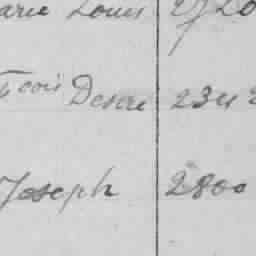 arie Louis
Fcois Desire 234
Joseph 2800